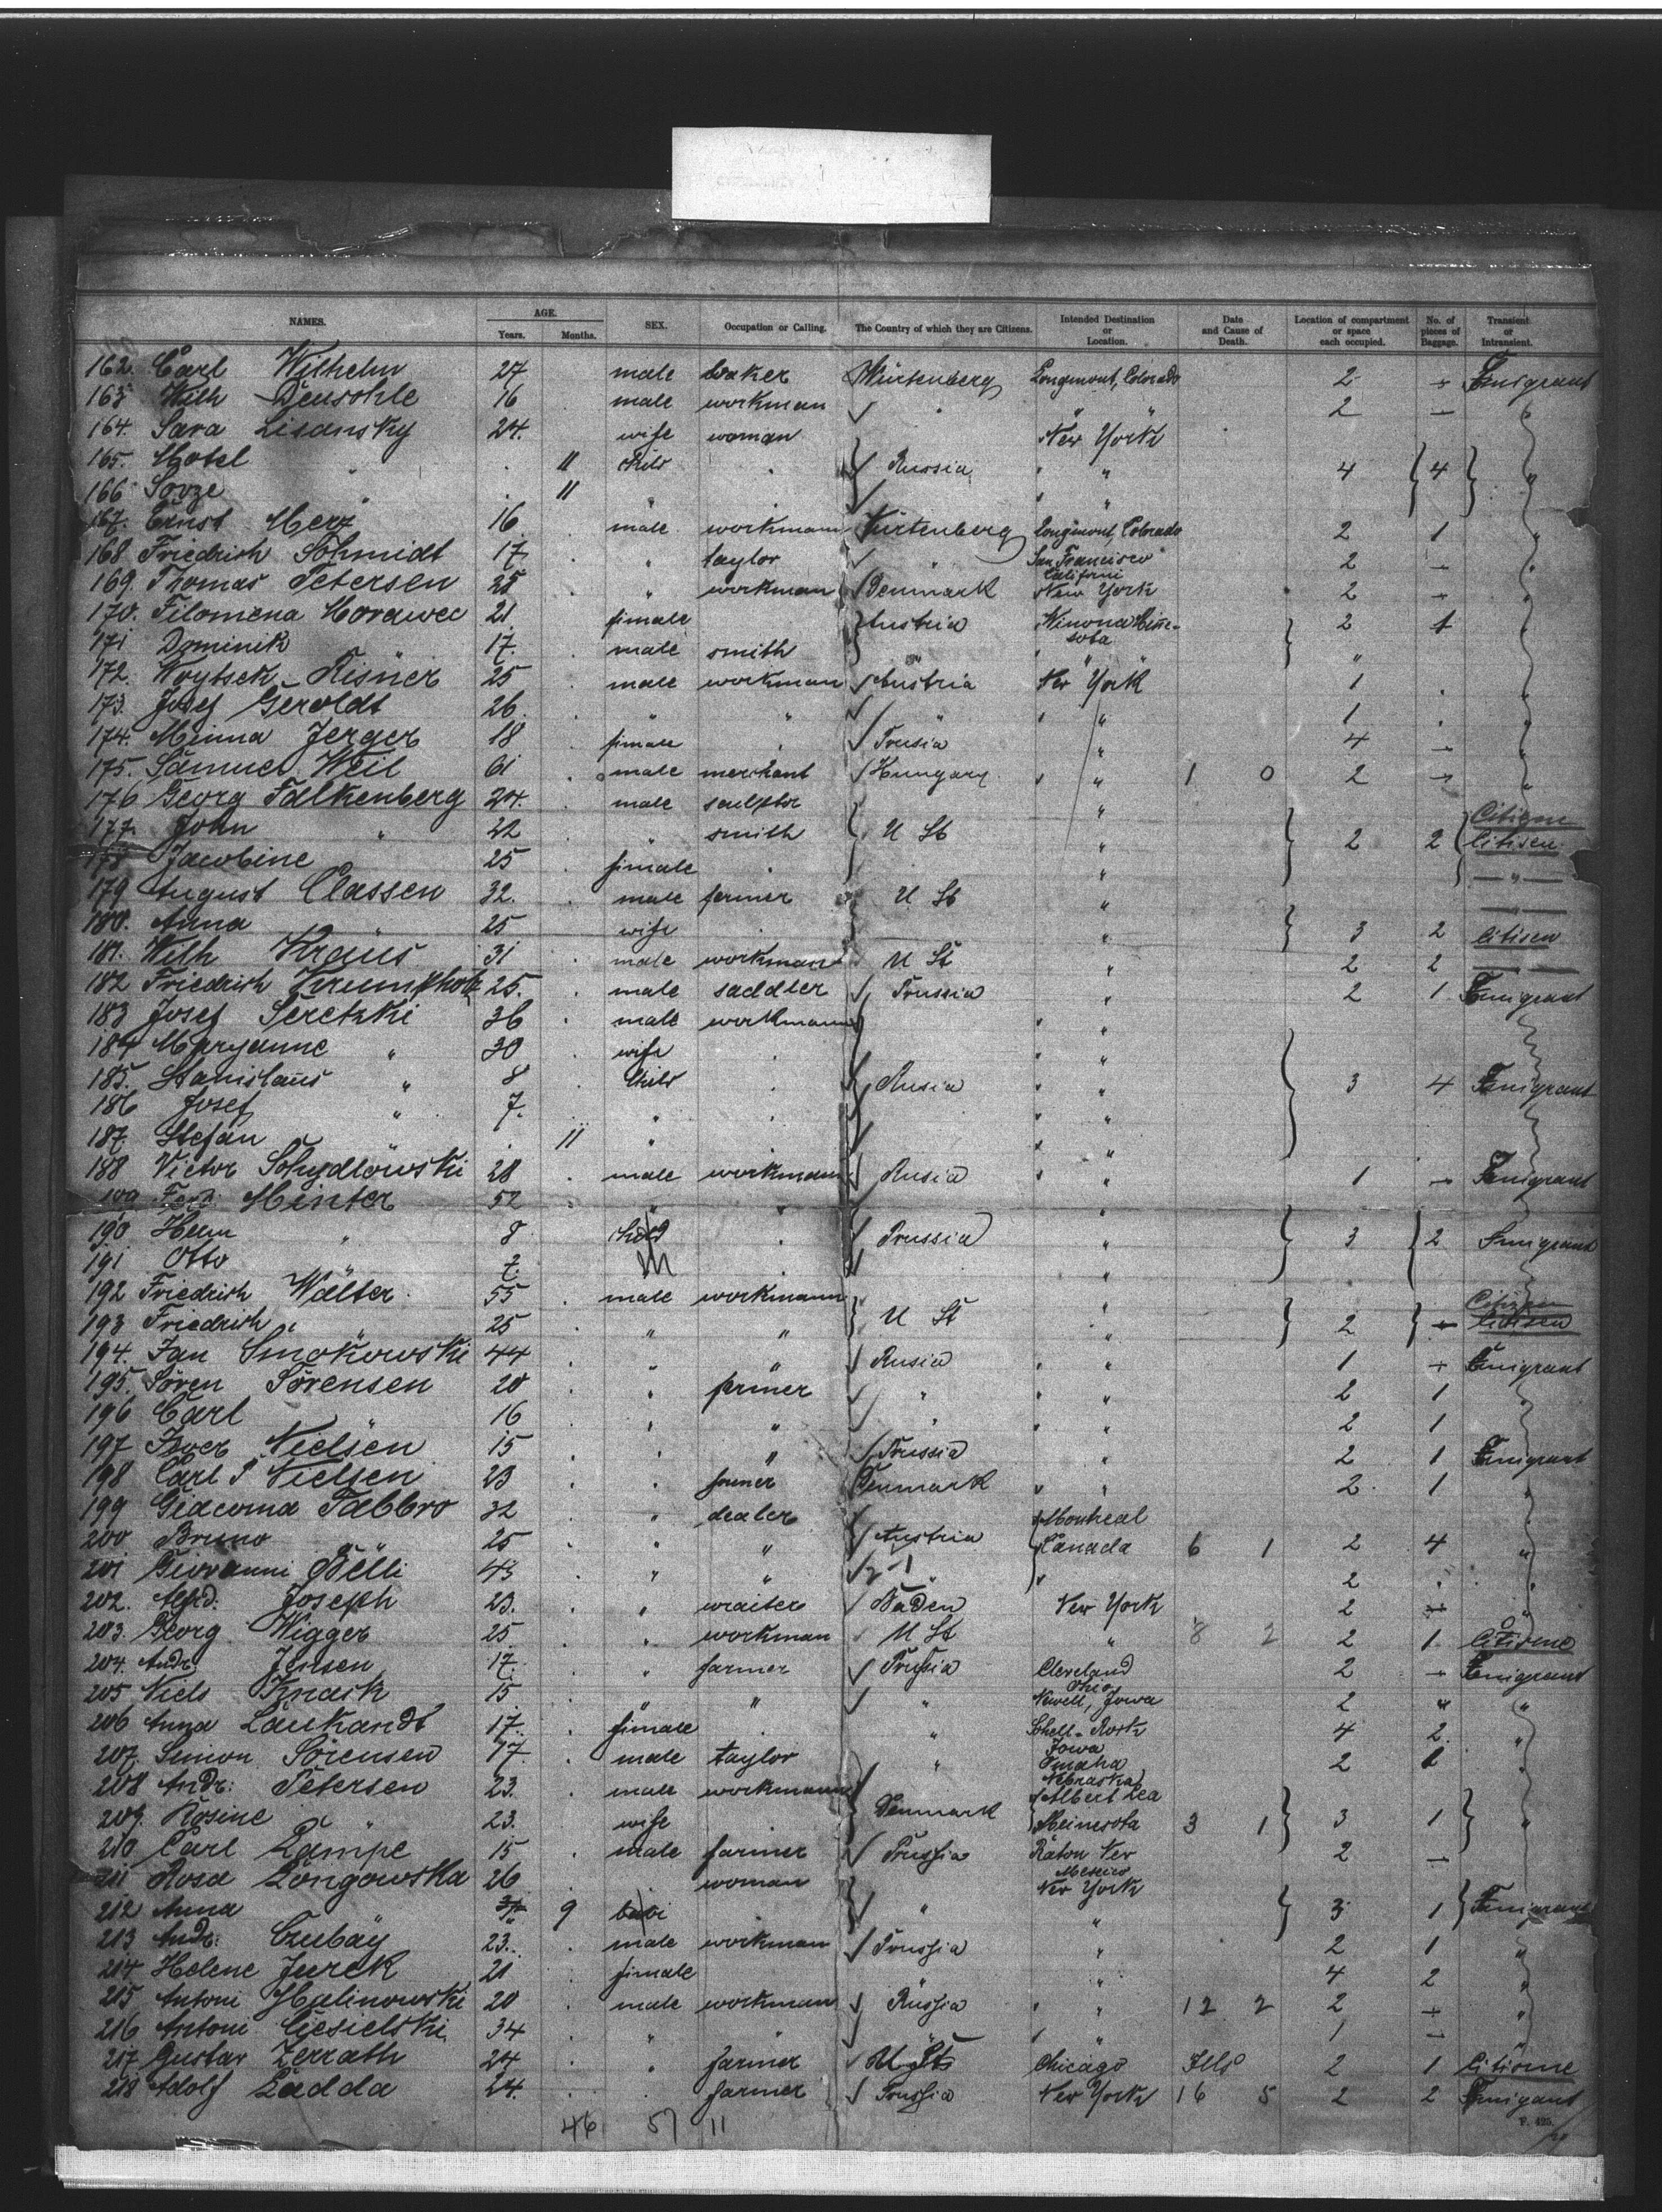 NAMES. AGE. Years. Months. SEX. Occupation or Calling. The Country of which they are Citizens. Intended Destination or Location. Date and Cause of Death. Location of compartment or space each occupied. No. of pieces of Baggage. Transient or Intransient.
162. Carl Wilhelm 27 male baker Würtenberg Longmont, Colorado 2 - Emigrant
163 Wilh 16 male workman " " " 2 - "
164. Sara Lisansky 24. wife woman New York
165. Motel " 11 child Russia " " 4 4 "
166 " 11 " " "
167. Ernst Merz 16 male workmann Würtenberg Longmont, Colorado 2 1 "
168. Friedrich Schmidt 17 " taylor " San Francisco Californi 2 - "
169. Thomas Petersen 25 " workman Denmark New York 2 - "
170. Filomena Morawec 21 fimale Austria Winona Mine- 2 1 "
171 Dominik 17. male smith " sota "
172. Woytsek Risner 25 male workman Austria New York 1
173. Josef Geroldt 26 " " " " 1 "
174. Minna Jerger 18 fimale Prusia " 4 - "
175. Samuel Weil 61 male merchant Hungary " 1 0 2 - "
176 Georg Falkenberg 24. male sculptor " Citizen
177 John " 22 " smith U St " 2 2 Citisen
178 Jacobine 25 fimale " - " -
179 August Classen 32. male farmer U St " - " -
180. Anna 25 wife " 3 2 Citisen
181. Wilh Kraus 31 male workman U St " 2 2 - " -
182 Friedrich Krumpholz 25. male saddler Prussia " 2 1 Emigrant
183 Josef Seretzki 36 male workmann "
184 Maryanne " 30 wife "
185. Stanislaus " 8 child Rusia " 3 4 Emigrant
186 Josef " 7. " "
187. Stefan 11 " "
188 Victor Schydlowski 28 male workmann Rusia " 1 - Emigrant
189 Ferd. Minter 52 " " "
190 Herm " 8 child Prussia " 3 2 Emigrant
191 Otto " 7. "
192 Friedrich Walter 55 male workmann " Citizen
193 Friedrich " 25 " " U St " 2 - Citisen
194. Jan Smokowski 44 " " Rusia " " 1 - Emigrant
195. Sören Sörensen 20 " farmer " " " 2 1 "
196 Carl 16 " " " " " 2 1 "
197 Iwer Nielsen 15 " " Prussia " 2 1 Emigrant
198 Carl P Nielsen 23 " farmer Denmark " " 2 1 "
199 Giacoma Fabbro 32 " dealer Montreal "
200 Bruno 25 " " Austria Canada 6 1 2 4 "
201 Giovanni Belli 43 " " " 2 "
202. Alfrd. Joseph 23. " waiter Baden New York 2 - "
203. Georg Wigger 25 " workman U St " 8 2 2 1 Citisene
204. Andr. Jensen 17. " farmer Prussia Cleveland Ohio 2 - Emigrant
205 Niels Knack 15 " " " Newell, Jowa 2 " "
206 Anna Laukandt 17. fimale " Schell-Rock Jowa 4 2. "
207. Simon Sörensen 17. male taylor " Omaha Nebraska 2 1 "
208 Andr. Petersen 23. male workmann Albert Lea
209. Rosine " 23. wife Denmark Meinesota 3 1 3 1 "
210 Carl Lampe 15 male farmer Prussia Raton New Mexico 2 -
211 Rosa Longowska 26 woman New York
212 Anna 9 babi " " 3 1 Emigrant
213 Andr. Czubay 23. male workman Prussia " 2 1 "
214 Helene Jurek 21 fimale " 4 2 "
215 Antoni Malinowski 20 male workman Russia " " 12 2 2 - "
216 Antoni Ciesielski 34 " " " " " 1 - "
217 Gustav Zerrath 24 " farmer U St Chicago Ills 2 1 Citisene
218 Adolf Ladda 24. farmer Prussia New York 16 5 2 2 Emigant
46 57 11
F. 425.